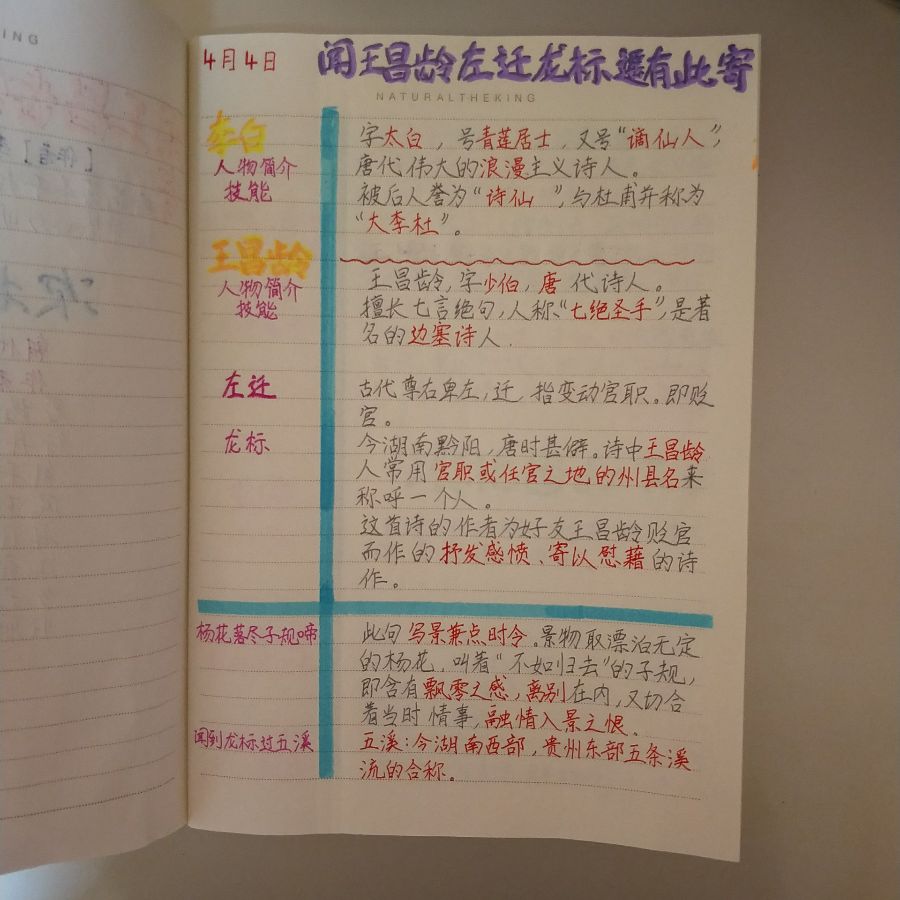 ING
4月4日
闻王昌龄左迁龙标遥有此寄
NATURALTHEKING
李白
人物简介
技能
字太白，号青莲居士，又号“谪仙人”，
唐代伟大的浪漫主义诗人。
被后人誉为“诗仙”，与杜甫并称为
“大李杜”。
王昌龄
人物简介
技能
王昌龄，字少伯，唐代诗人。
擅长七言绝句，人称“七绝圣手”，是著
名的边塞诗人.
左迁
古代尊右卑左，迁，指变动官职。即贬
官。
龙标
今湖南黔阳，唐时甚僻。诗中王昌龄
人常用官职或任官之地的州县名来
称呼一个人。
这首诗的作者为好友王昌龄贬官
而作的抒发感愤、寄以慰藉的诗
作。
杨花落尽子规啼
此句写景兼点时令。景物取漂泊无定
的杨花，叫着“不如归去”的子规，
即含有飘零之感，离别在内，又切合
着当时情事，融情入景之恨。
闻到龙标过五溪
五溪：今湖南西部，贵州东部五条溪
流的合称。